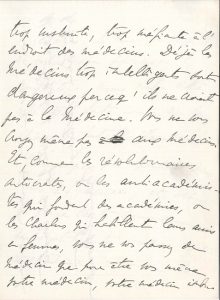 trop instruite, trop méfiante à l'
endroit des médecins. Déjà les
médecins trop intelligents sont
dangereux parce qu'ils ne croient
pas à la médecine. Vous ne vous
croyez même pas aux médecins.
Et, comme les révolutionnaires
autocrates, ou les antiacadémis-
tes qui fondent des académies, ou
les Charlus qui habillent leurs amis
en femmes, vous ne vous passez de
médecin que pour être vous même
votre médecin, votre médecin